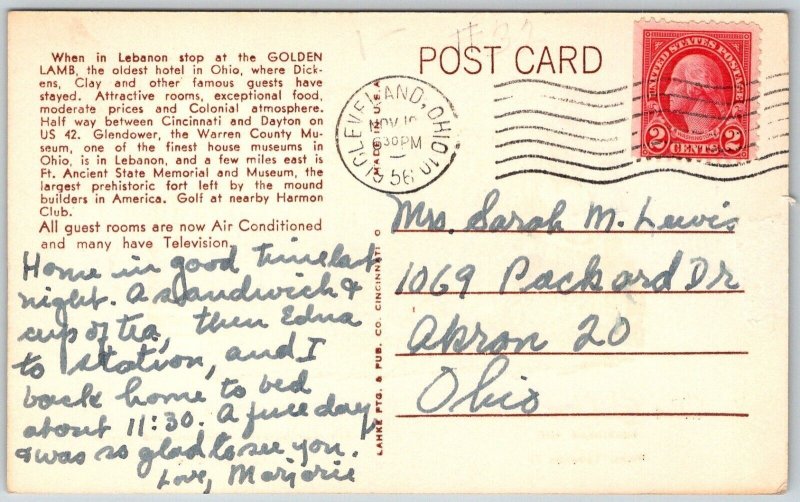 When in Lebanon stop at the GOLDEN
LAMB, the oldest hotel in Ohio, where Dick-
ens, Clay and other famous guests have
stayed. Attractive rooms, exceptional food,
moderate prices and Colonial atmosphere.
Half way between Cincinnati and Dayton on
US 42. Glendower, the Warren County Mu-
seum, one of the finest house museums in
Ohio, is in Lebanon, and a few miles east is
Ft. Ancient State Memorial and Museum, the
largest prehistoric fort left by the mound
builders in America. Golf at nearby Harmon
Club.
All guest rooms are now Air Conditioned
and many have Television.
Home in good time last
night. A sandwich &
cup of tea, then Edna
to station, and I
back home to bed
about 11:30. A full day
& was so glad to see you.
Love, Marjorie
MADE IN U.S.A.
LAHKE PTG. & PUB. CO. CINCINNATI O
POST CARD
CLEVELAND, OHIO
NOV
30 PM
56
UNITED STATES POSTAGE
2 CENTS 2
Mrs. Sarah M. Lewis
1069 Packard Dr
Akron 20
Ohio